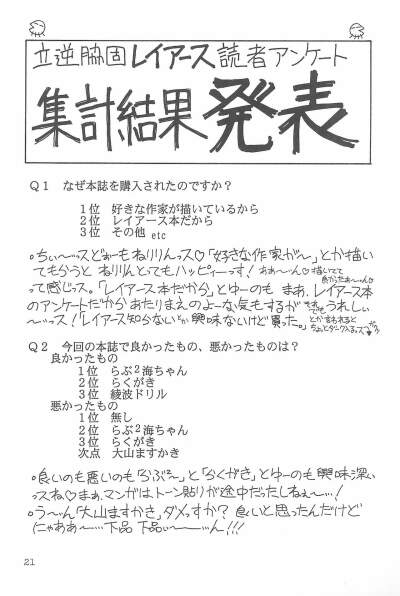 立逆脇固レイアース読者アンケート
集計結果発表
Q1 なぜ本誌を購入されたのですか？
1位 好きな作家が描いているから
2位 レイアース本だから
3位 その他 etc
・ちぃ〜ッスどぉーもねりりんっス♡「好きな作家が〜」とか描い
てもらうと ねりりんとってもハッピィーっす！ あぁ〜ん♡描いてて
良かったぁ〜ん♡
って感じッス。「レイアース本だから」とゆーのも まあ、レイアース本
のアンケートだからあたりまえのよーな気もするが それでもうれしい
〜ッス！「レイアース知らないが興味ないけど買った。」
とか言われると
ちょっとダーク入るっス
Q2 今回の本誌で良かったもの、悪かったものは？
良かったもの
1位 らぶ²海ちゃん
2位 らくがき
3位 綾波ドリル
悪かったもの
1位 無し
2位 らぶ²海ちゃん
3位 らくがき
次点 大山ますかき
・良いのも悪いのも「らぶ²〜」と「らくがき」とゆーのも興味深い
ッスね♡まぁ、マンガはトーン貼りが途中だったしねぇ〜…！
・う〜ん「大山ますかき」ダメっすか？ 良いと思ったんだけど
にゃああ〜…下品 下品ぃ〜ん!!!
21